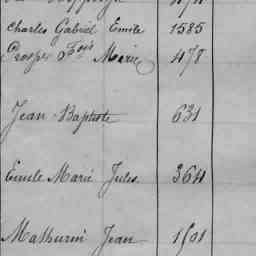 Charles Gabriel Emile 1585
Prosper Fois Marie 478
Jean Baptiste 631
Emile Marie Jules 364
Mathurin Jean 1501